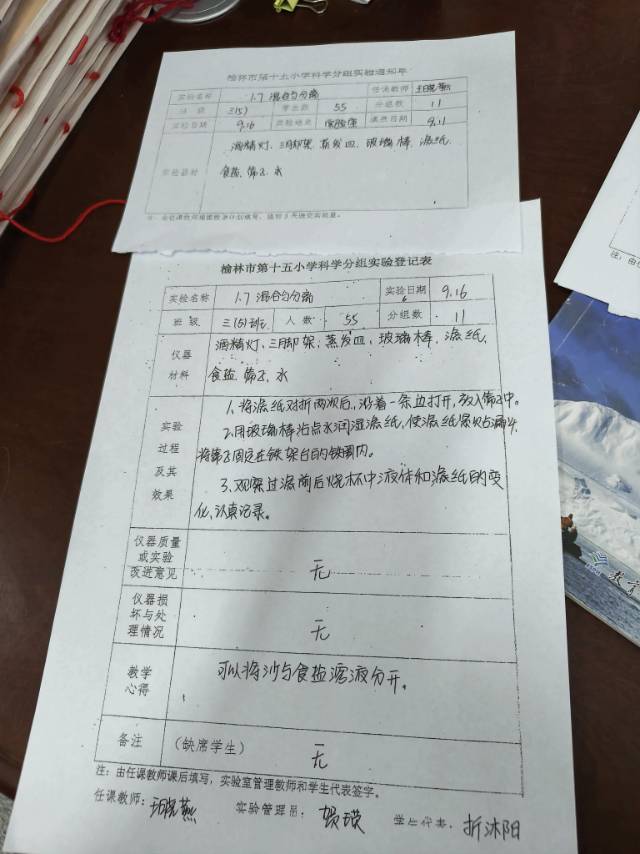 榆林市第十五小学科学分组实验通知单
实验名称 1.7 混合与分离 任课教师
班级 三(5) 学生数 55 分组数 11
实验日期 9.16 实验地点 实验室 填表日期 9.11
实验器材
酒精灯、三脚架、蒸发皿、玻璃棒、滤纸、
食盐、筛子、水
榆林市第十五小学科学分组实验登记表
实验名称 1.7 混合与分离 实验日期 9.16
班级 三(5)班 人数 55 分组数 11
仪器材料
酒精灯、三脚架、蒸发皿、玻璃棒、滤纸、
食盐、筛子、水
实验过程及其效果
1、将滤纸对折两次后,沿着一条边打开,放入筛子中。
2、用玻璃棒沾点水润湿滤纸,使滤纸紧贴漏斗,
将筛子固定在铁架台的铁圈内。
3、观察过滤前后烧杯中液体和滤纸的变
化,认真记录。
仪器质量或实验改进意见 无
仪器损坏与处理情况 无
教学心得 可以将沙与食盐溶液分开。
备注 (缺席学生) 无
注:由任课教师课后填写,实验室管理教师和学生代表签字。
任课教师: 实验管理员:贺瑛 学生代表:折沐阳
教育